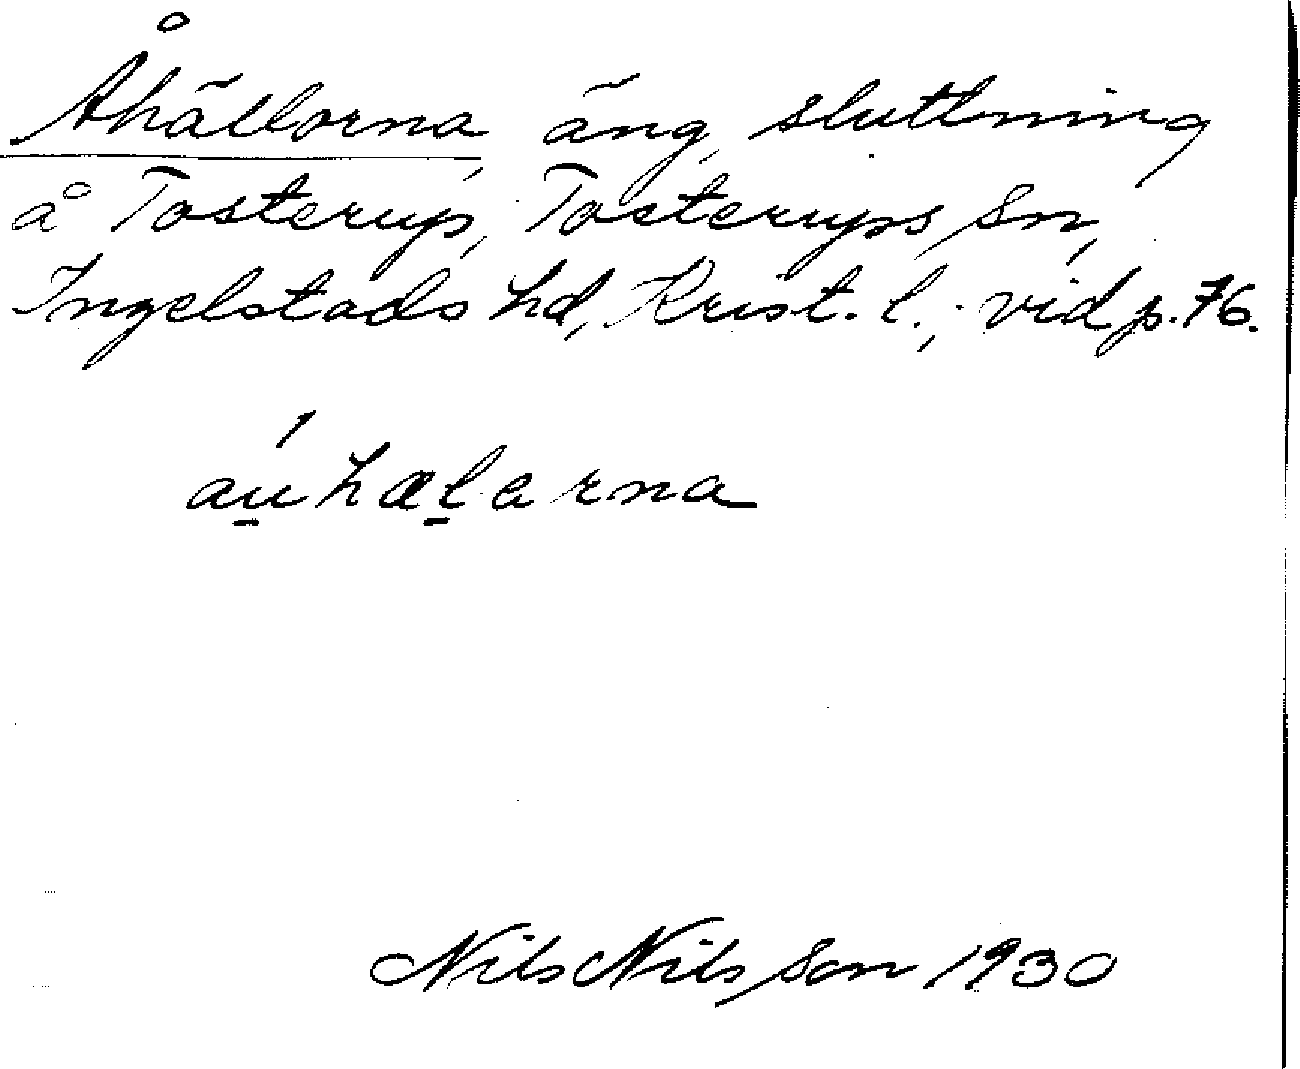 Åhällorna, äng, sluttning
å Tosterup, Tosterups sn,
Ingelstads hd, Krist. l.; vid p. 76.
áu̠hæl̠arna
Nils Nilsson 1930